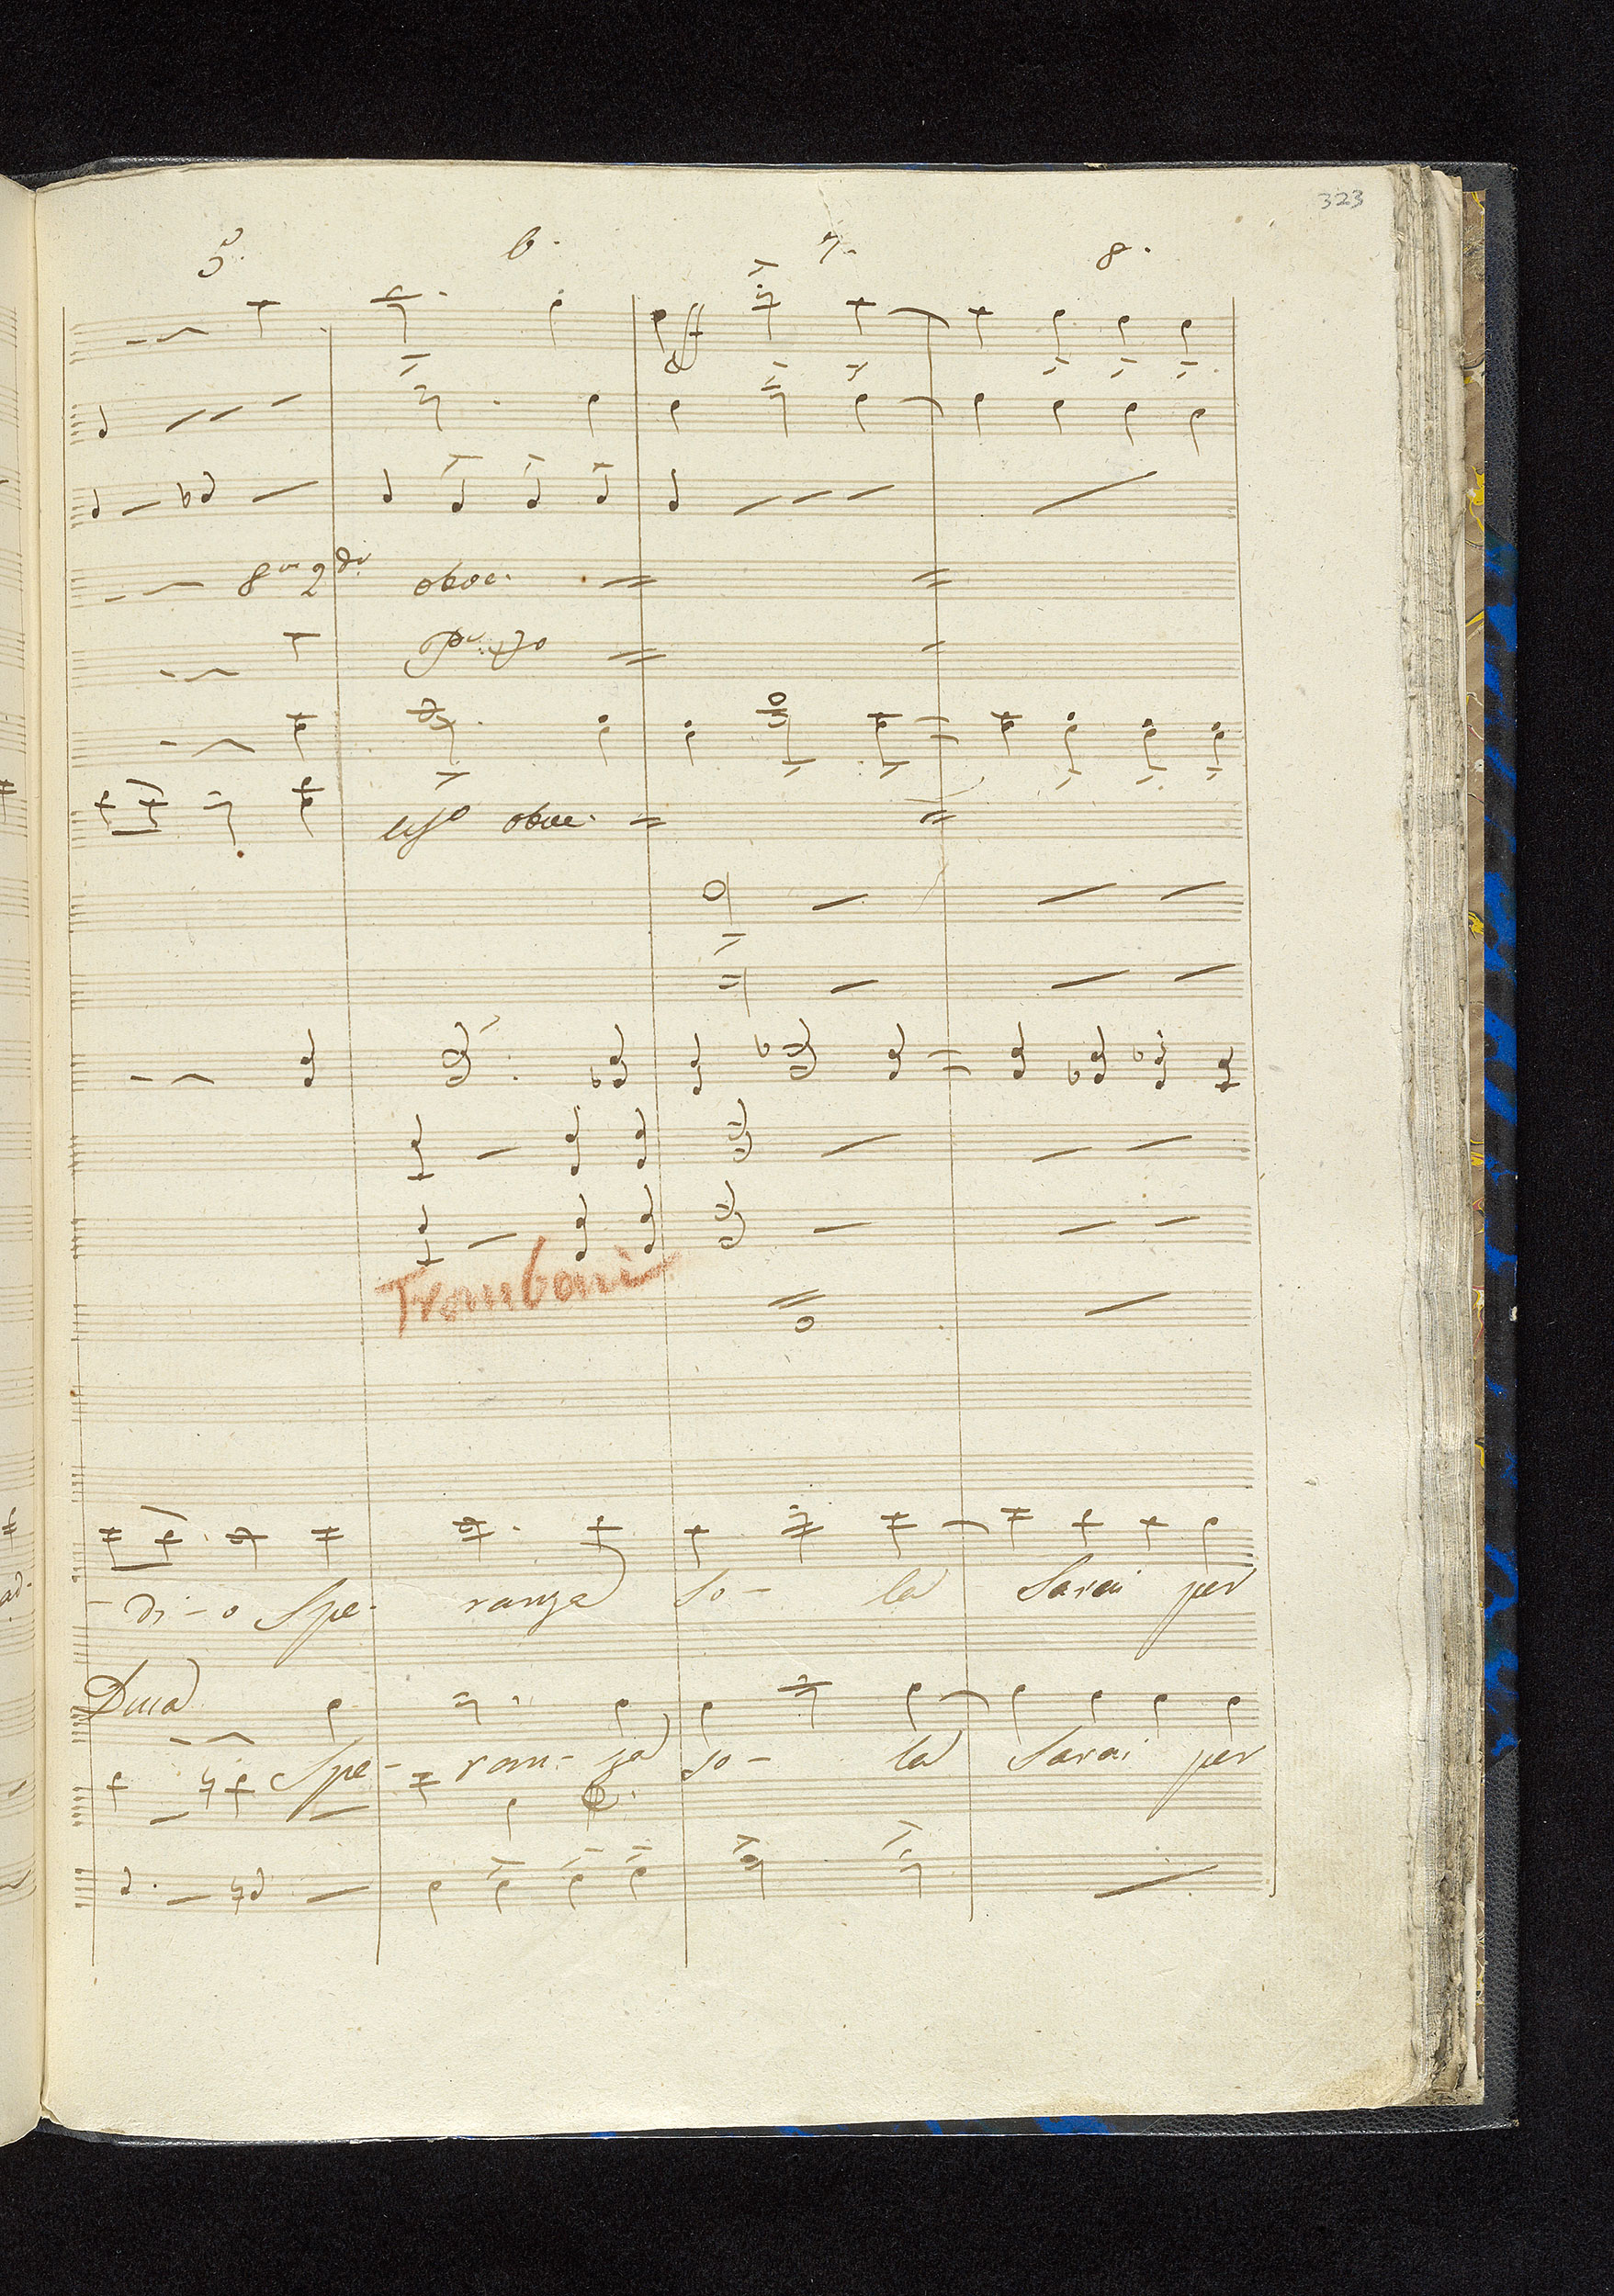 323
5. 6. 7. 8.
ff
8va 2do oboe.
oboe.
Tromboni
di-o Spe-ranza so-la Sarai per
Duca
Spe-ran-za so-la Sarai per
ad-